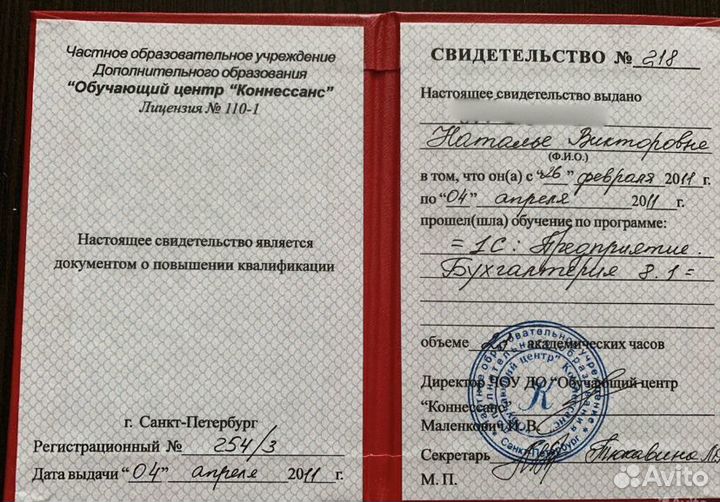 Частное образовательное учреждение
Дополнительного образования
"Обучающий центр "Коннессанс"
Лицензия № 110-1
Настоящее свидетельство является
документом о повышении квалификации
г. Санкт-Петербург
Регистрационный № 254/3
Дата выдачи "04" апреля 2011 г.
СВИДЕТЕЛЬСТВО № 218
Настоящее свидетельство выдано
Наталье Викторовне
(Ф.И.О.)
в том, что он(а) с "26" февраля 2011 г.
по "04" апреля 2011 г.
прошел(шла) обучение по программе:
= 1С: Предприятие.
Бухгалтерия 8.1 =
объеме академических часов
Директор ЧОУ ДО "Обучающий центр
"Коннессанс"
Маленкович И.В.
Секретарь
М. П.
Avito